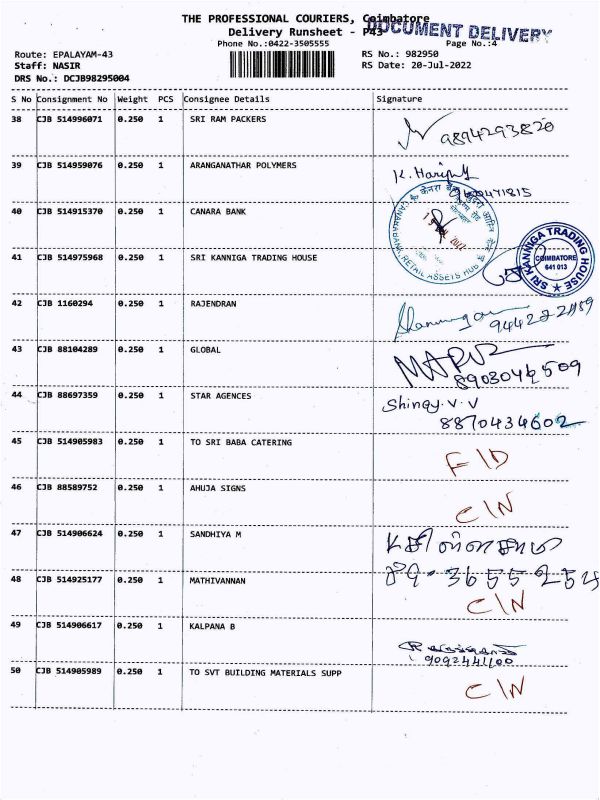 THE PROFESSIONAL COURIERS, Coimbatore
DOCUMENT DELIVERY
Delivery Runsheet - P43
Phone No.:0422-3505555
Page No.:4
Route: EPALAYAM-43
RS No.: 982950
Staff: NASIR
RS Date: 20-Jul-2022
DRS No.: DCJB98295004
S No Consignment No Weight PCS Consignee Details Signature
38 CJB 514996071 0.250 1 SRI RAM PACKERS
9894293820
39 CJB 514959076 0.250 1 ARANGANATHAR POLYMERS
40 CJB 514915370 0.250 1 CANARA BANK
CANARA BANK, RETAIL ASSETS HUB
41 CJB 514975968 0.250 1 SRI KANNIGA TRADING HOUSE
SRI KANNIGA TRADING HOUSE
COIMBATORE
641 013
42 CJB 1160294 0.250 1 RAJENDRAN
43 CJB 88104289 0.250 1 GLOBAL
44 CJB 88697359 0.250 1 STAR AGENCES
Shincy.V.V
8870434602
45 CJB 514905983 0.250 1 TO SRI BABA CATERING
F/D
46 CJB 88589752 0.250 1 AHUJA SIGNS
C/N
47 CJB 514906624 0.250 1 SANDHIYA M
48 CJB 514925177 0.250 1 MATHIVANNAN
C/N
49 CJB 514906617 0.250 1 KALPANA B
9092441100
50 CJB 514905989 0.250 1 TO SVT BUILDING MATERIALS SUPP
C/N